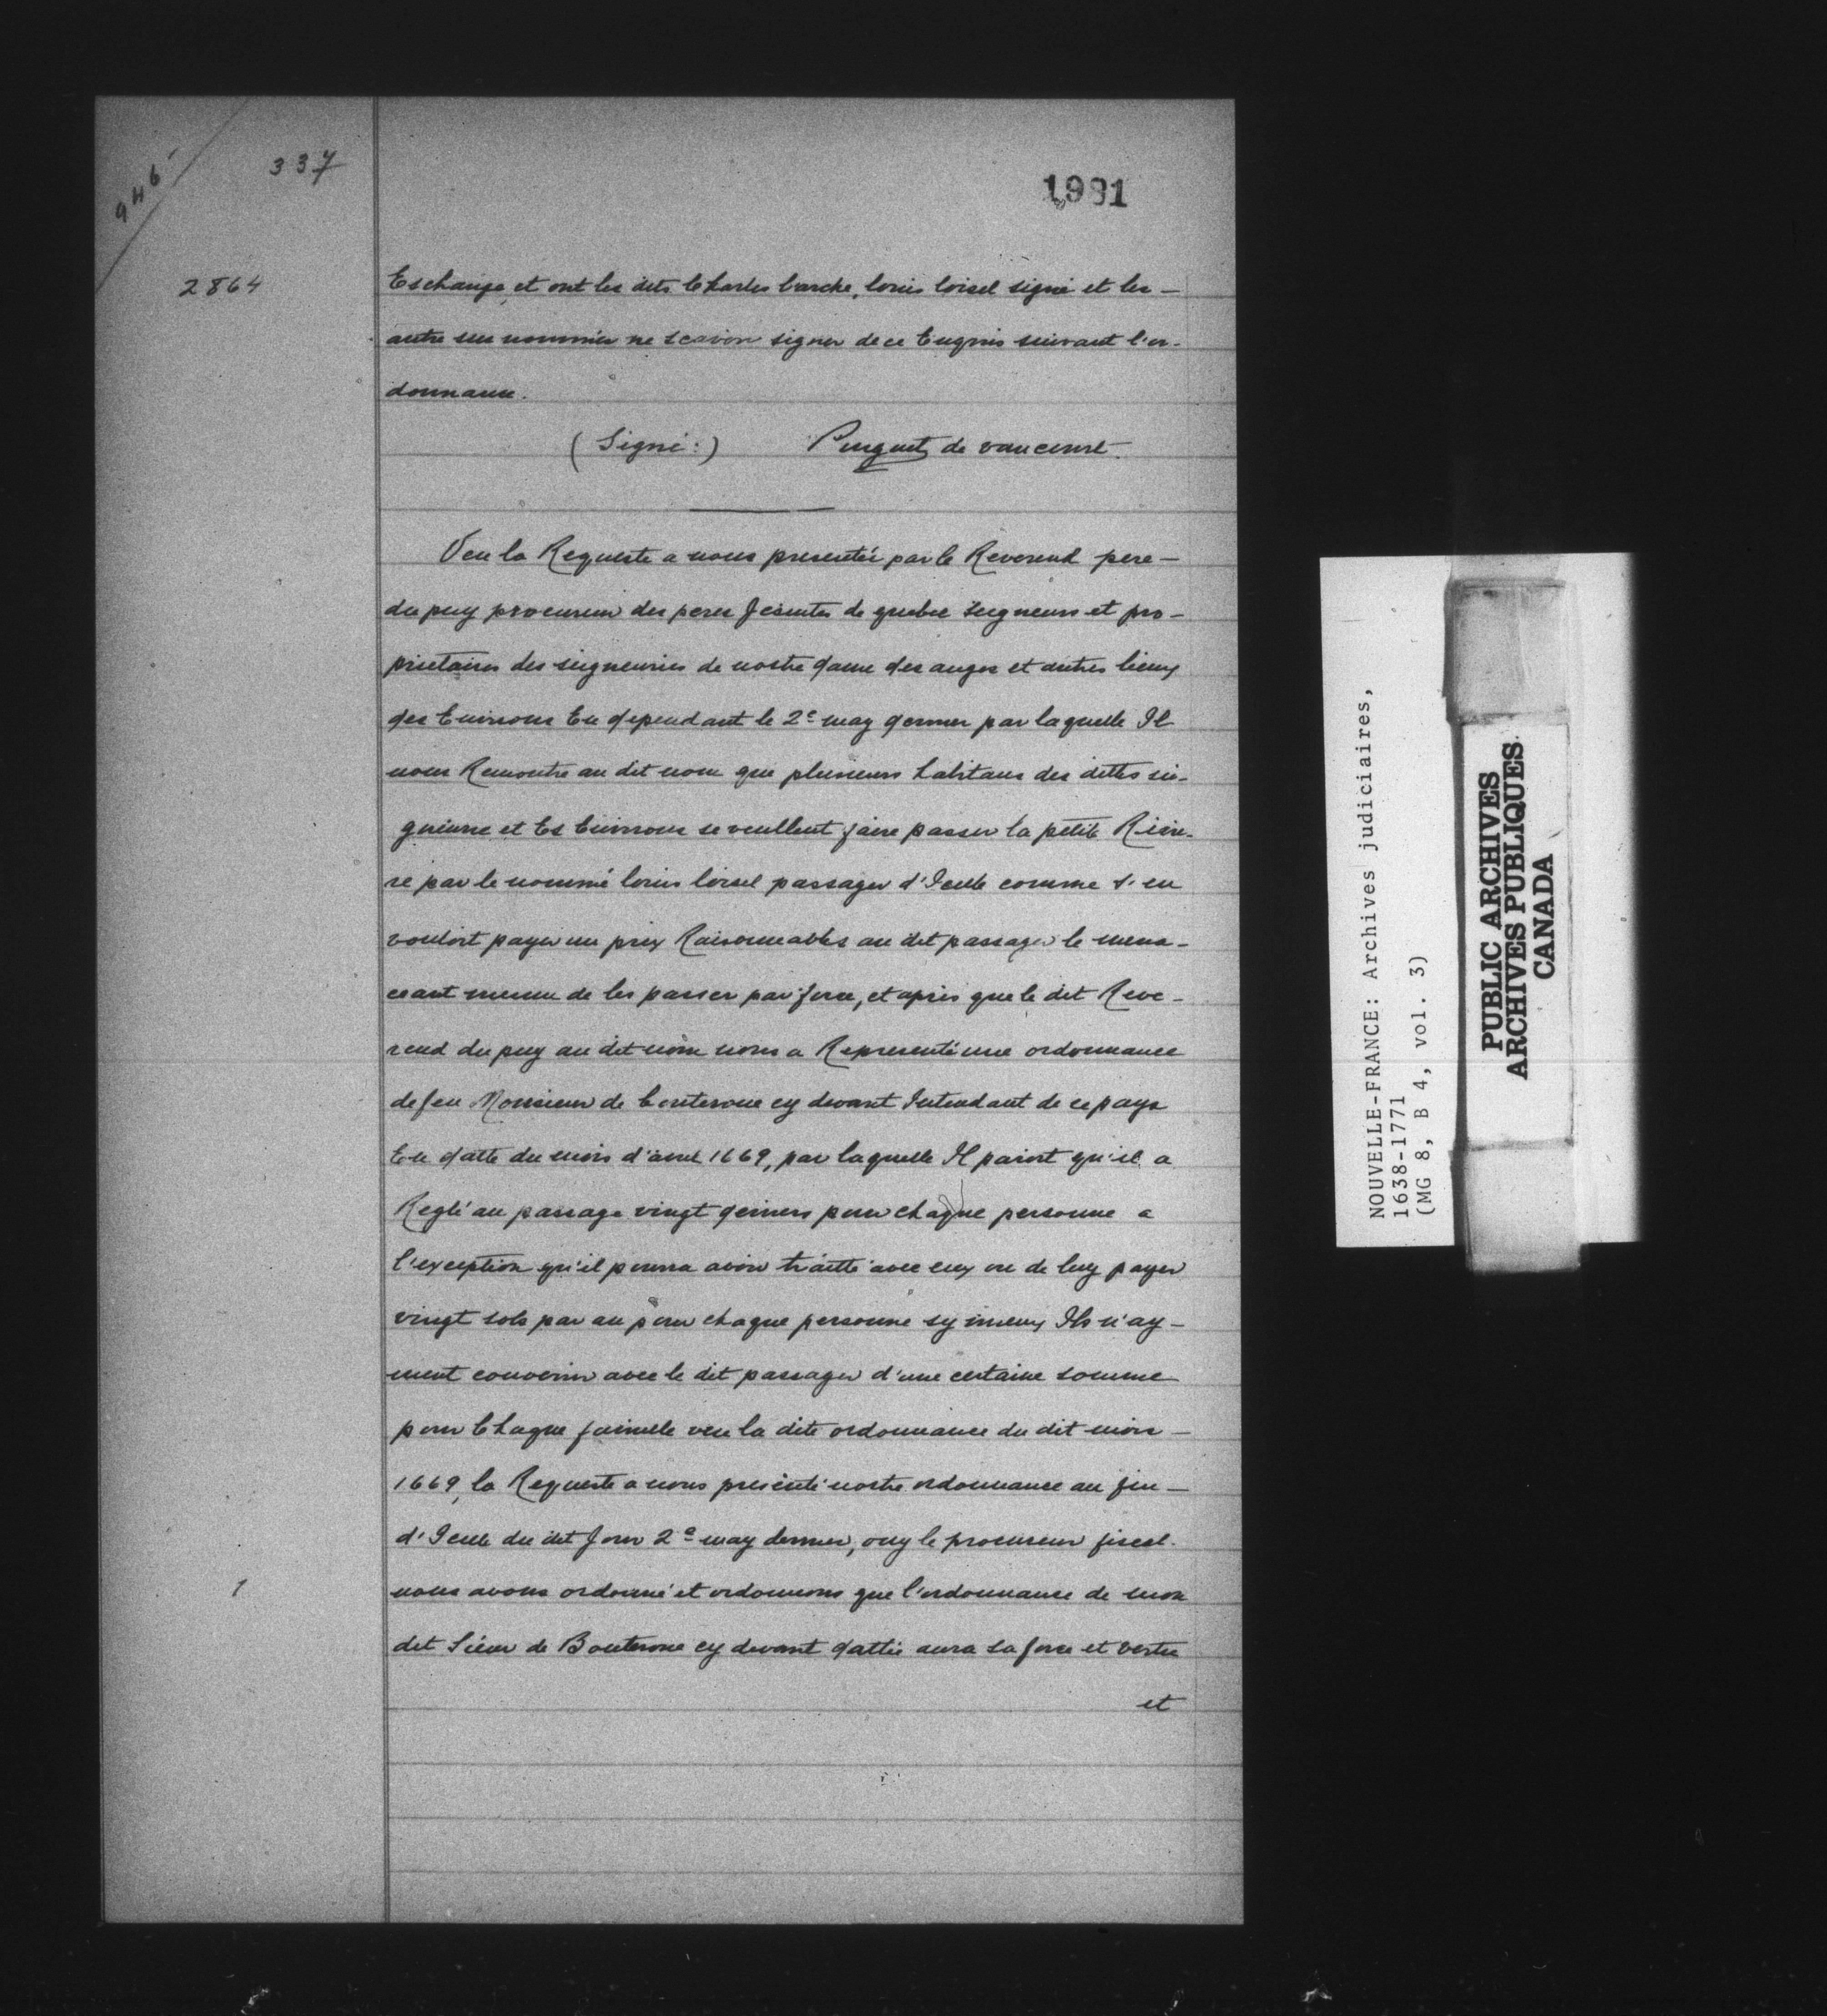 946
337
1991
2864
Eschange, et ont les dits Charles barche, louis loisel signé et les -
autre sus nommés ne scavoir signer de ce Enquis suivant l'or-
donnance.
(Signé:) Puguet de vaucourt.
Veu la Requeste a nous presentée par le Reverend pere -
du puy procureur des peres Jesuites de quebec seigneurs et pro-
prietaires des seigneuries de nostre dame des anges et autres lieux
des Environs En dependant le 2e may dernier par laquelle Il
nous Remontre au dit nom que plusieurs habitans des dittes sei-
gneurie et Es Environs se veullent faire passer la petite Rivie-
re par le nommé louis loisel passager d'Icelle comme s'en
vouloit payer un prix Raisonnables au dit passager le mena-
ceant mesme de les passer par force, et après que le dit Reve-
rend du puy au dit nom nous a Representé une ordonnance
de feu Monsieur de bouteroue cy devant Intendant de ce pays
En datte du mois d'avril 1669, par laquelle Il paroit qu'il a
Reglé au passage vingt deniers pour chaque personne a
l'exception qu'il pourra avoir traitté avec eux ou de luy payer
vingt sols par an pour chaque personne sy mieux Ils n'ay-
ment convenir avec le dit passager d'une certaine somme
pour Chaque famille veu la dite ordonnance du dit mois -
1669, la Requeste a nous presenté nostre ordonnance au fin -
d'Icelle du dit Jour 2e may dernier, ouy le procureur fiscal.
1
nous avons ordonné et ordonnons que l'ordonnance de mon
dit Sieur de Bouteroue cy devant dattée aura sa force et vertu
et
NOUVELLE-FRANCE: Archives judiciaires,
1638-1771
(MG 8, B 4, vol. 3)
PUBLIC ARCHIVES
ARCHIVES PUBLIQUES
CANADA